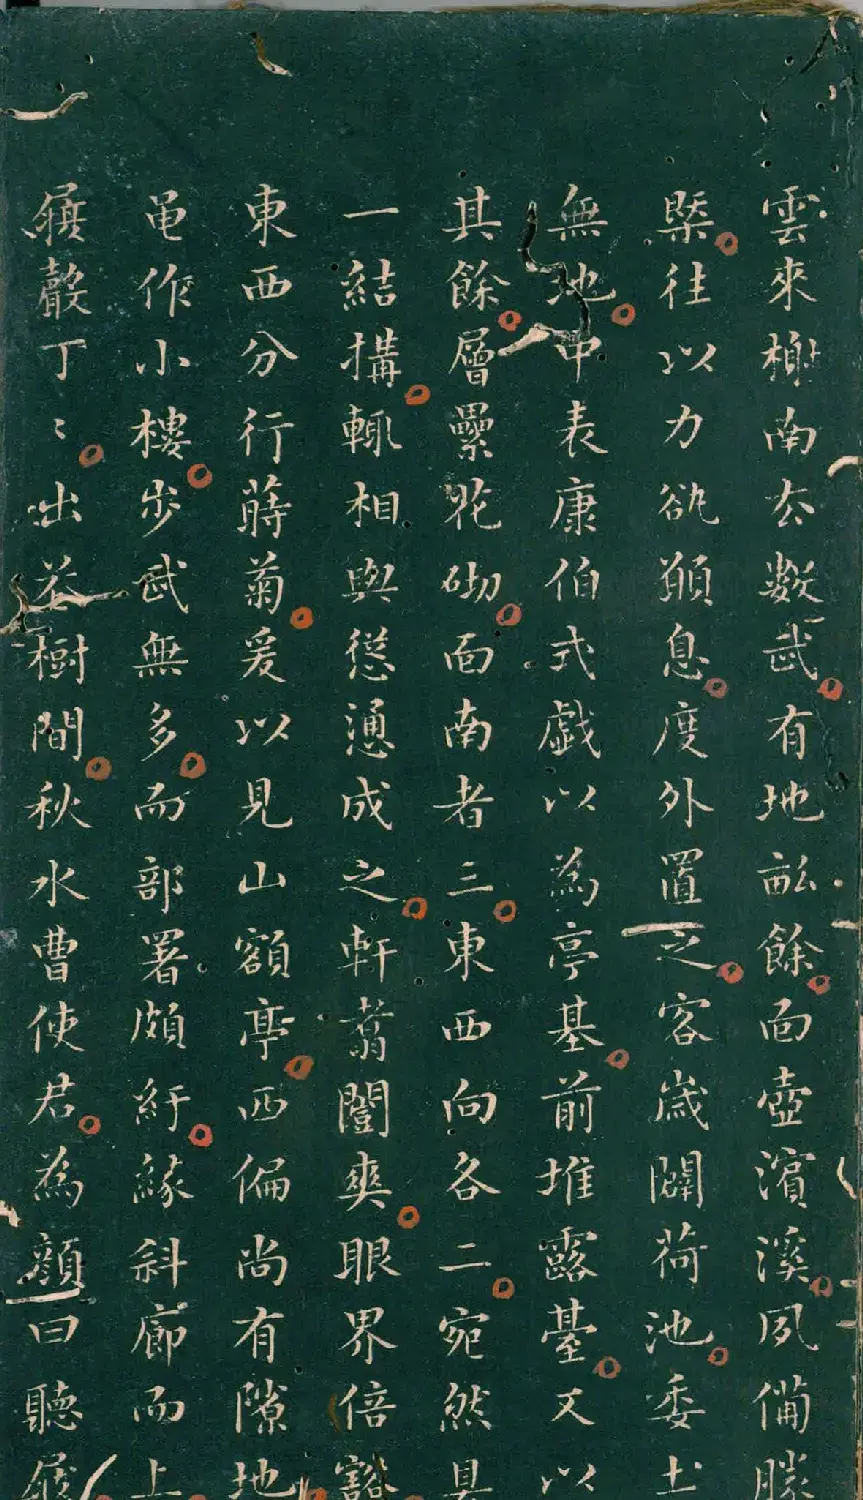 雲來榭南去數武有地畝餘面壺濱溪夙備勝
槩往以力欲願息度外置之客歲闢荷池委土
無地中表康伯式戯以為亭基前堆露臺又以
其餘層壘花砌面南者三東西向各二宛然具
一結搆輒相與慫慂成之軒翥闓爽眼界倍豁
東西分行蒔菊爰以見山額亭西偏尚有隙地
黽作小樓步武無多而部署頗紆緣斜廊而上
屧聲丁〻出花樹間秋水曹使君為顏曰聽屧